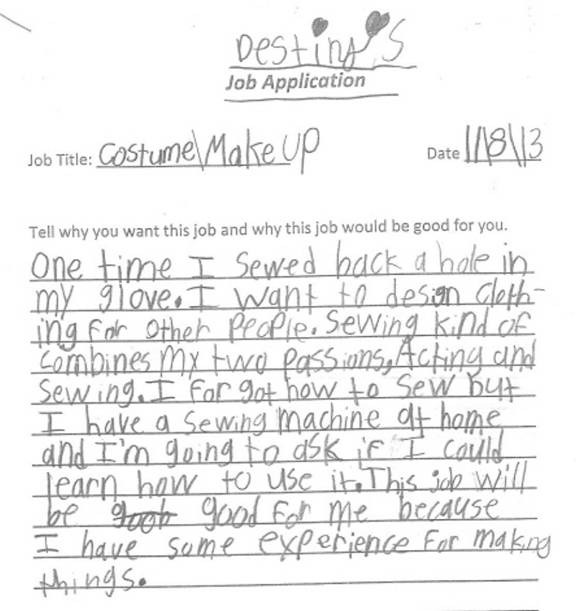 Destiny's
Job Application
Job Title: Costume\Make UP
Date 1/18\13
Tell why you want this job and why this job would be good for you.
One time I sewed back a hole in
my glove. I want to design cloth-
ing for other People. Sewing kind of
combines my two passions, Acting and
Sewing. I forgot how to sew but
I have a sewing machine at home
and I'm going to ask if I could
learn how to use it. This job will
be good for me because
I have some experience for making
things.